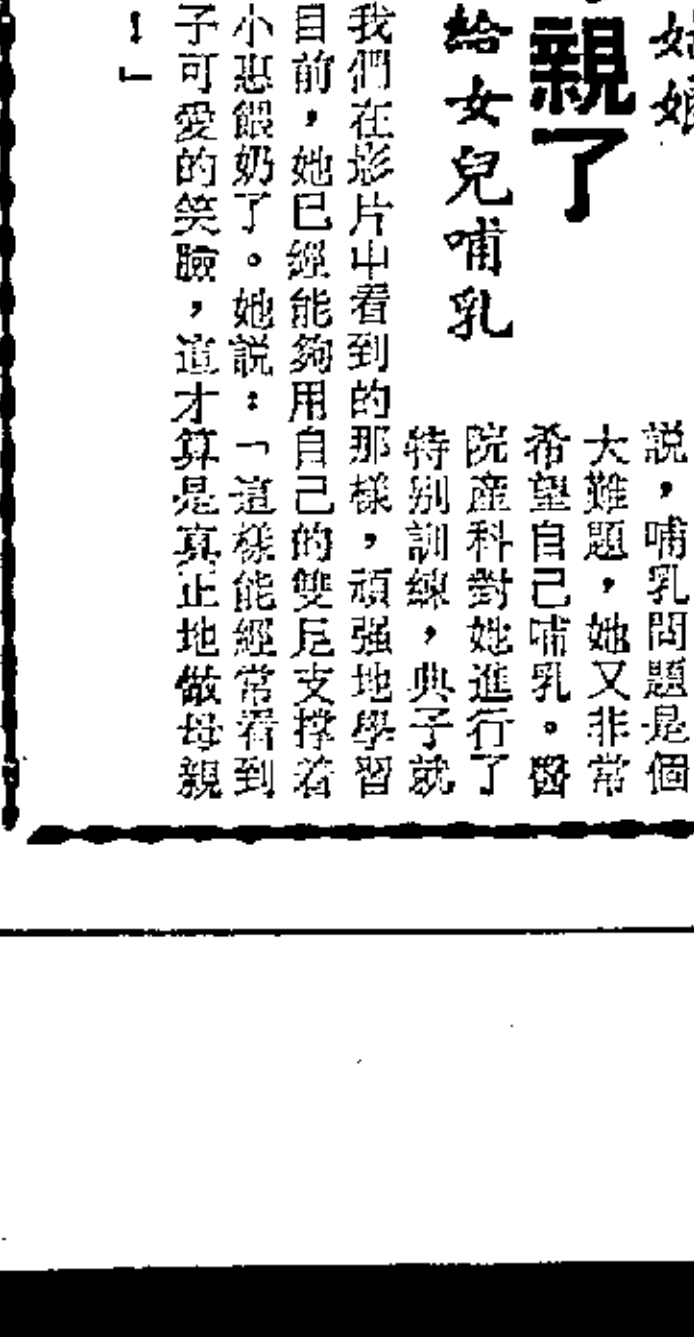 姑娘
親了
給女兒哺乳
説，哺乳問題是個
大難題，她又非常
希望自己哺乳。醫
院産科對她進行了
特别訓練，典子就
我們在影片中看到的那樣，頑强地學習
目前，她已經能夠用自己的雙足支撑着
小惠餵奶了。她説：「這樣能經常看到
子可愛的笑臉，這才算是真正地做母親
！」